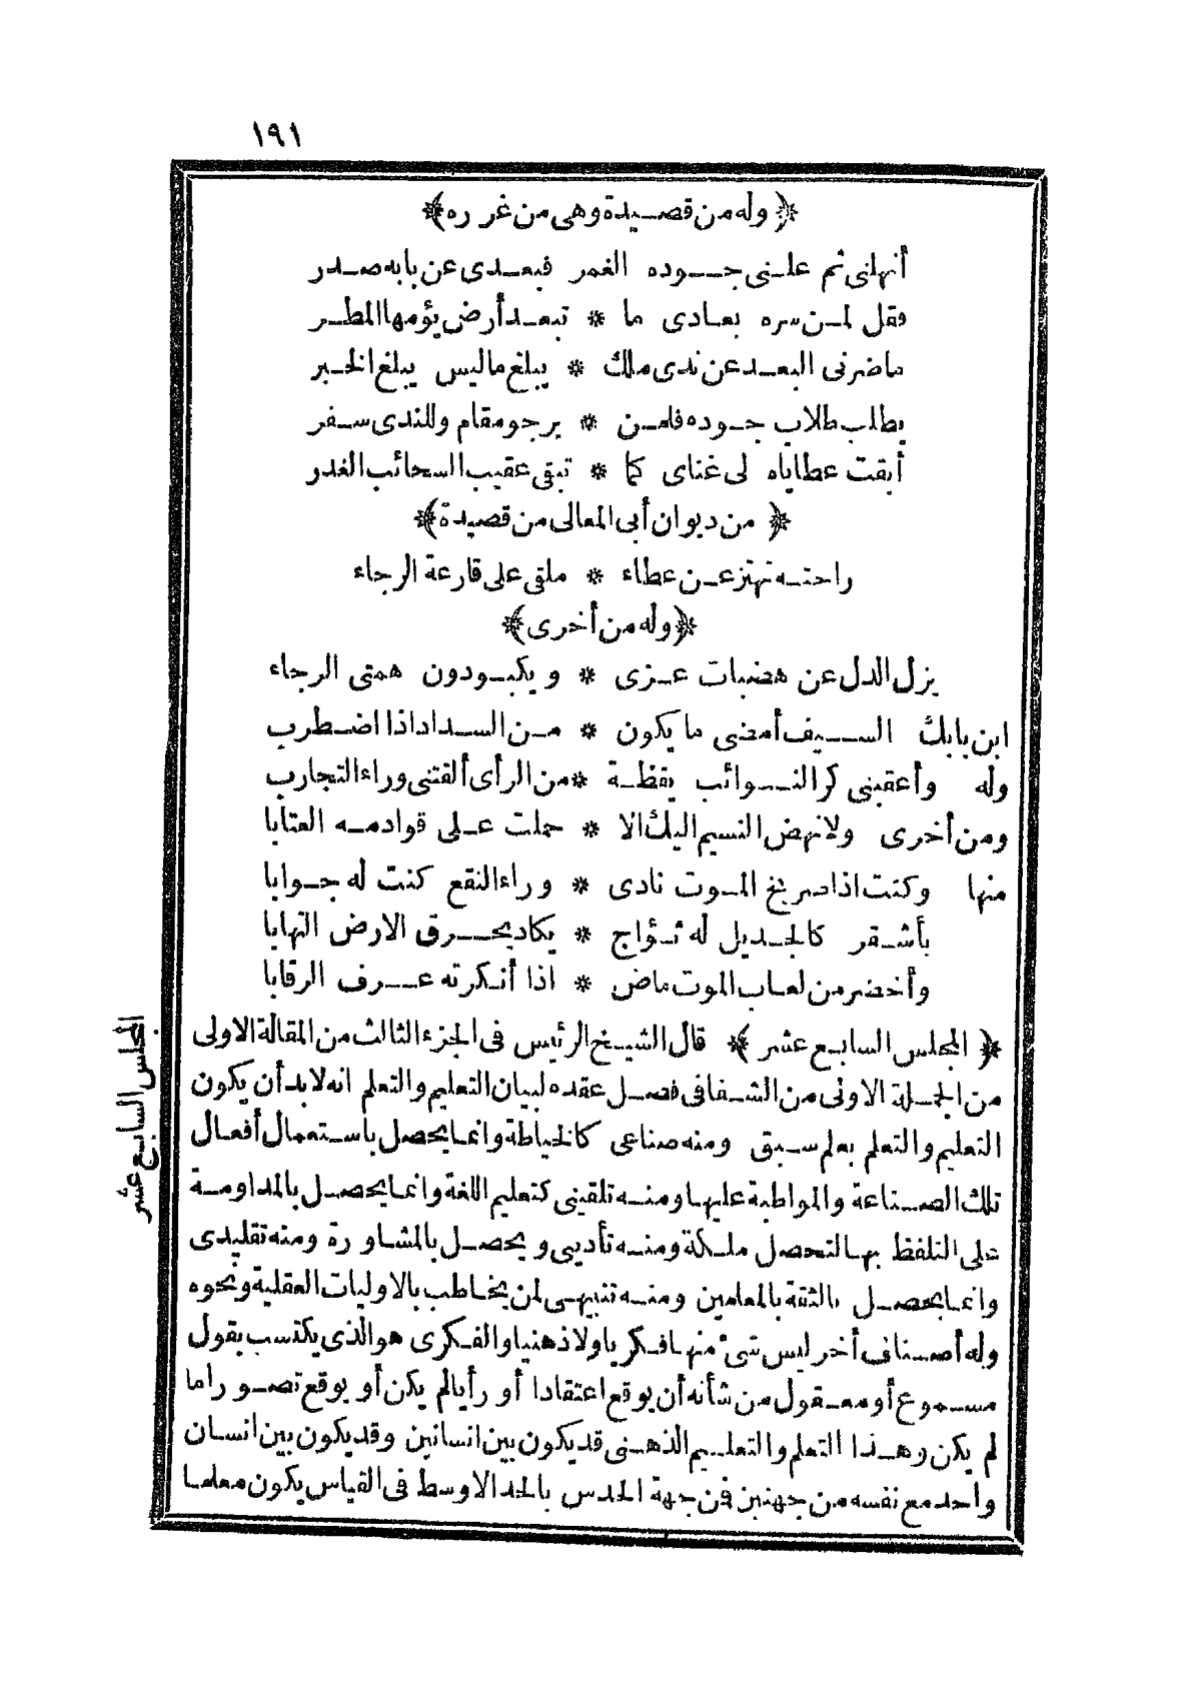 ١٩١
﴿ وله من قصيدة وهى من غرره ﴾
أنهلنى ثم علنى جوده الغمر فبعدى عن بابه صدر
فقل لمن سره بعادى ما * تبعد أرض يؤمها المطر
ماضرنى البعد عن ندى ملك * يبلغ ماليس يبلغ الخبر
يطلب طلاب جوده فلمن * يرجو مقام وللندى سفر
أبقت عطاياه لى غناى كما * تبقى عقيب السحائب الغدر
﴿ من ديوان أبى المعالى من قصيدة ﴾
راحته تهتز عن عطاء * ملقى على قارعة الرجاء
﴿ وله من أخرى ﴾
يزل الدل عن هضبات عزى * ويكبودون همتى الرجاء
ابن بابك السيف أمضى ما يكون * من السداد اذا اضطرب
وله وأعقبنى كر النوائب يقظة * من الرأى ألفتنى وراء التجارب
ومن أخرى ولانهض النسيم اليك الا * حملت على قوادمه العتابا
منها وكنت اذا صريخ الموت نادى * وراء النقع كنت له جوابا
بأشقر كالجديل له ثؤاج * يكاد يحرق الارض التهابا
وأخضر من لعاب الموت ماض * اذا أنكرته عرف الرقابا
﴿ المجلس السابع عشر ﴾ قال الشيخ الرئيس فى الجزء الثالث من المقالة الاولى
من الجملة الاولى من الشفا فى فصل عقده لبيان التعليم والتعلم انه لا بد أن يكون
التعليم والتعلم بعلم سبق ومنه صناعى كالخياطة وانما يحصل باستعمال أفعال
تلك الصناعة والمواظبة عليها ومنه تلقينى كتعليم اللغة وانما يحصل بالمداومة
على التلفظ بها لتحصل ملكة ومنه تأديبى ويحصل بالمشاورة ومنه تقليدى
وانما يحصل بالثقة بالمعلمين ومنه تنبيهى لمن يخاطب بالاوليات العقلية ونحوه
وله أصناف أخر ليس شئ منها فكريا ولا ذهنيا والفكرى هو الذى يكتسب بقول
مسموع أو معقول من شأنه أن يوقع اعتقادا أو رأيا لم يكن أو يوقع تصورا ما
لم يكن وهذا التعلم والتعليم الذهنى قد يكون بين انسانين وقد يكون بين انسان
واحد مع نفسه من جهتين فمن جهة الحدس بالحد الاوسط فى القياس يكون معلما
المجلس السابع عشر